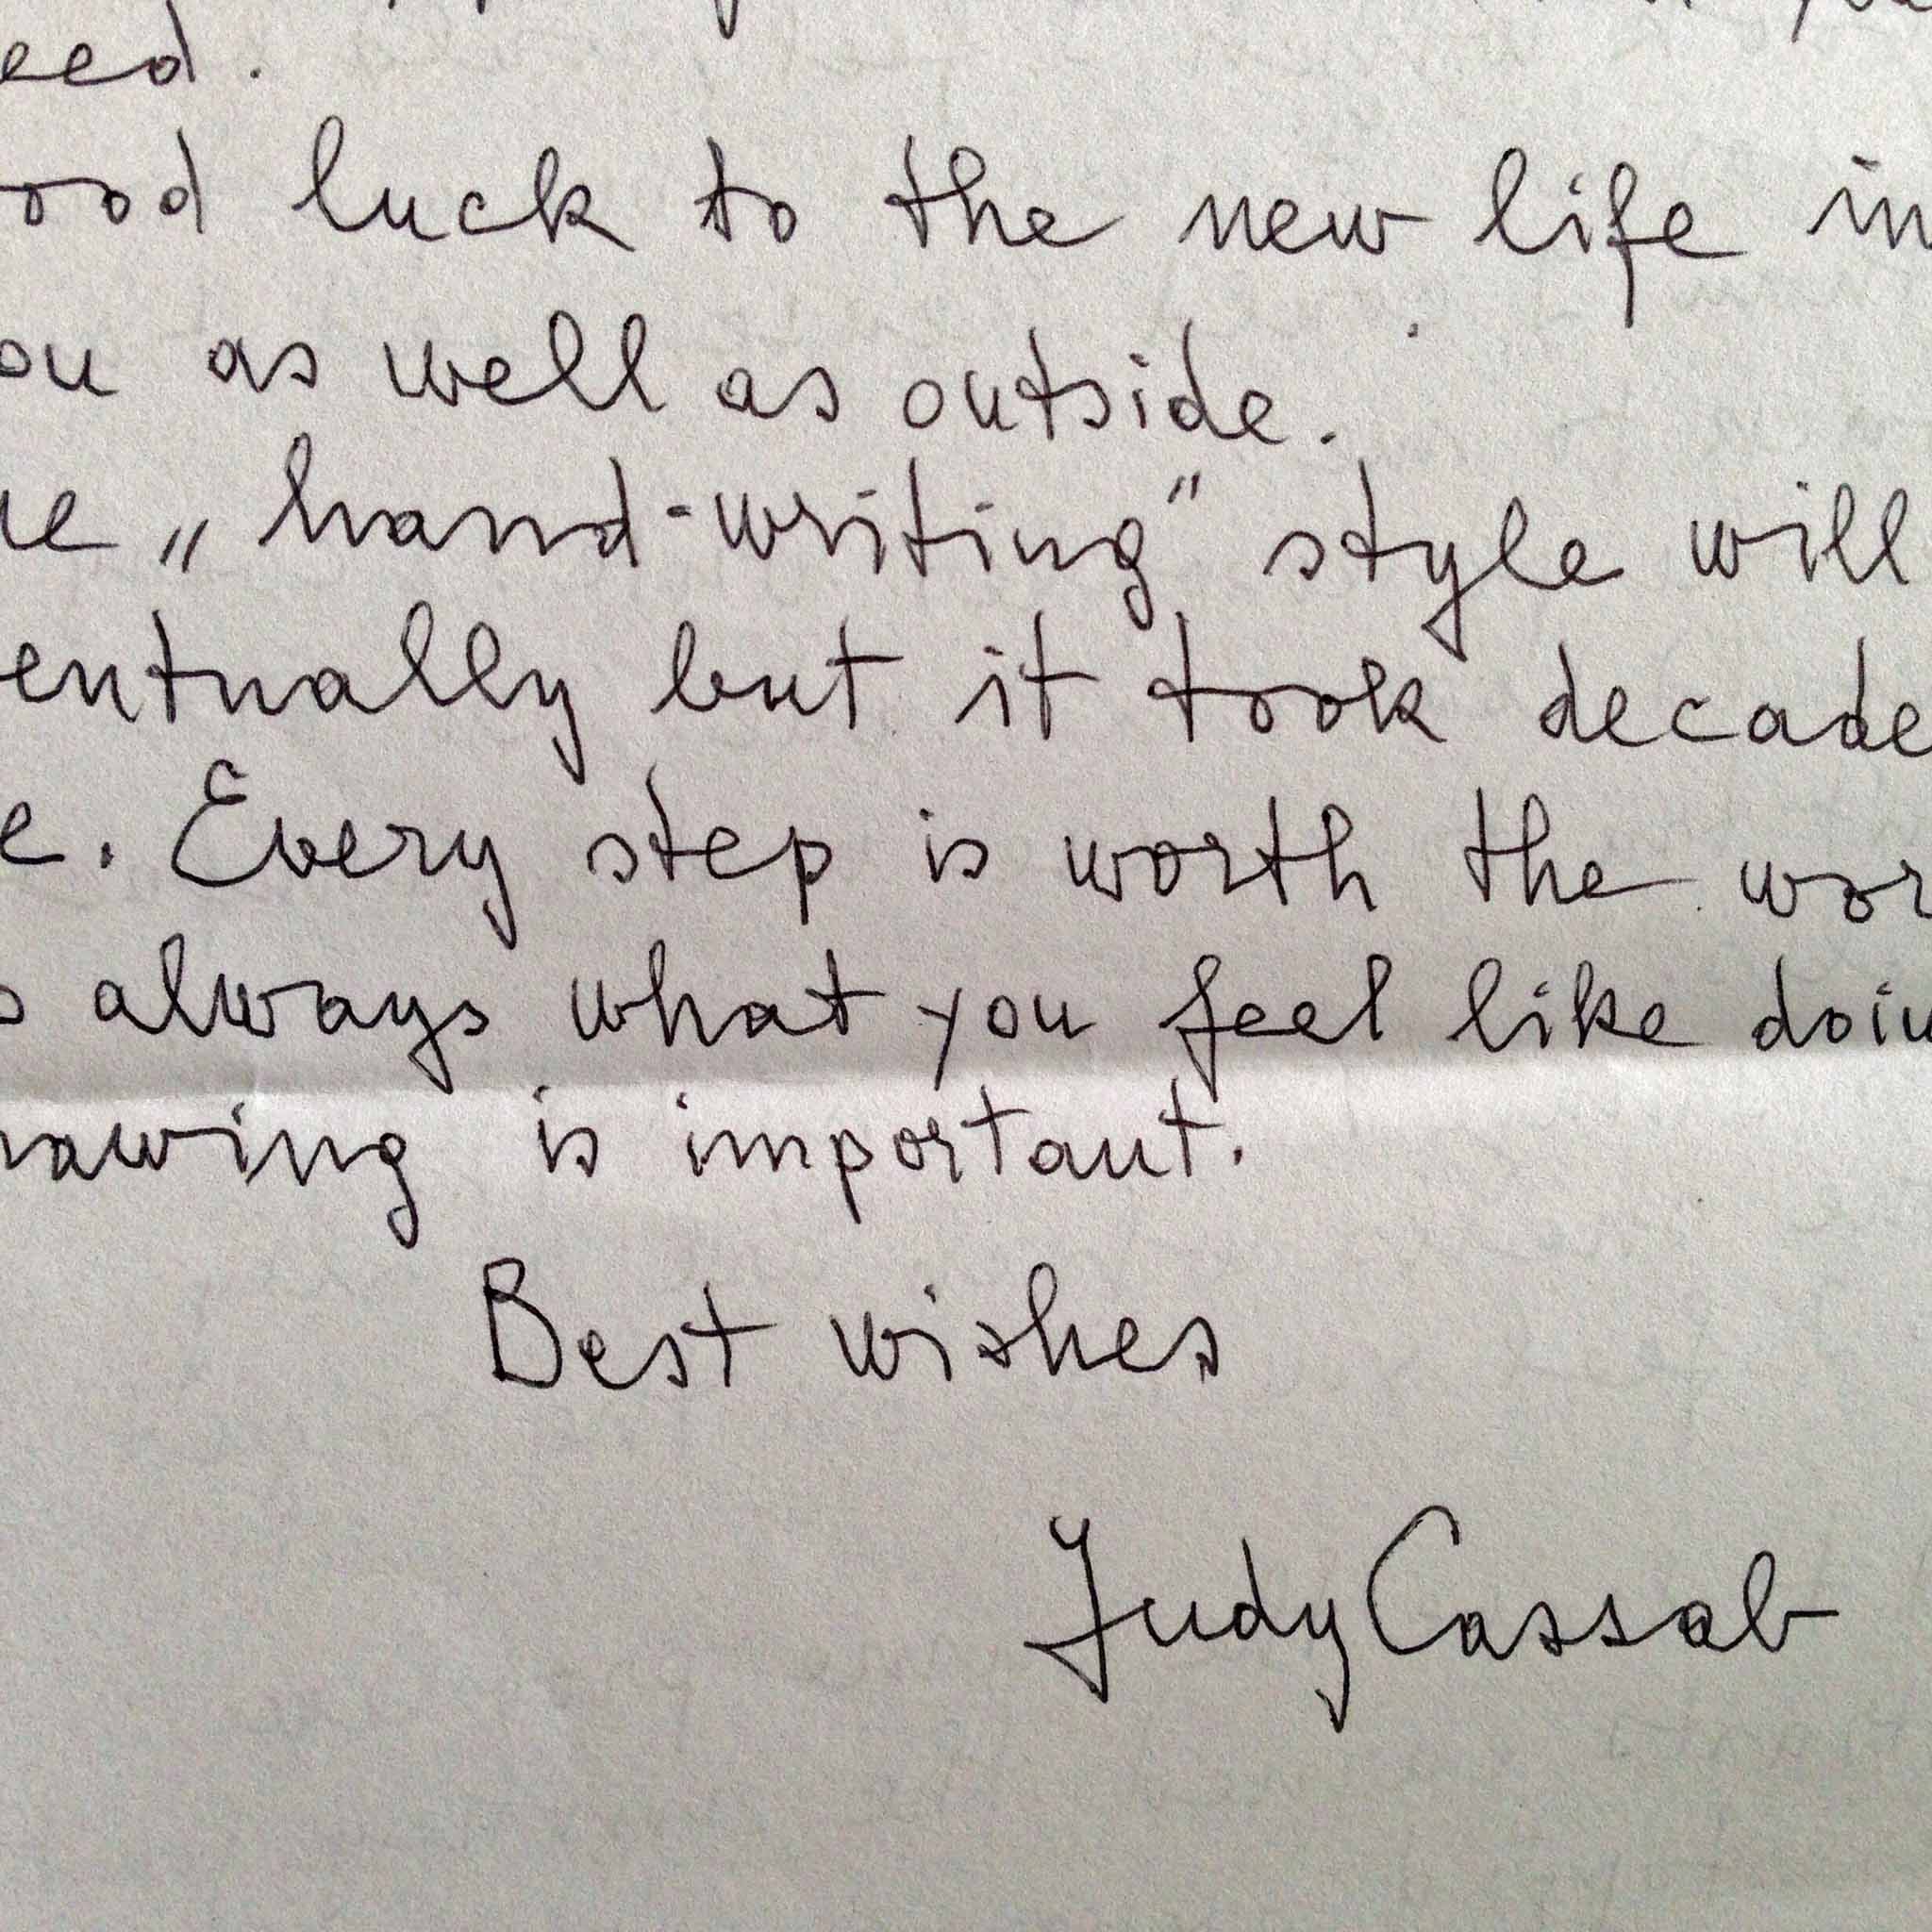 eed.
ood luck to the new life in
ou as well as outside.
e „hand-writing" style will
entually but it took decade
e. Every step is worth the wor
s always what you feel like doin
rawing is important.
Best wishes
Judy Cassab